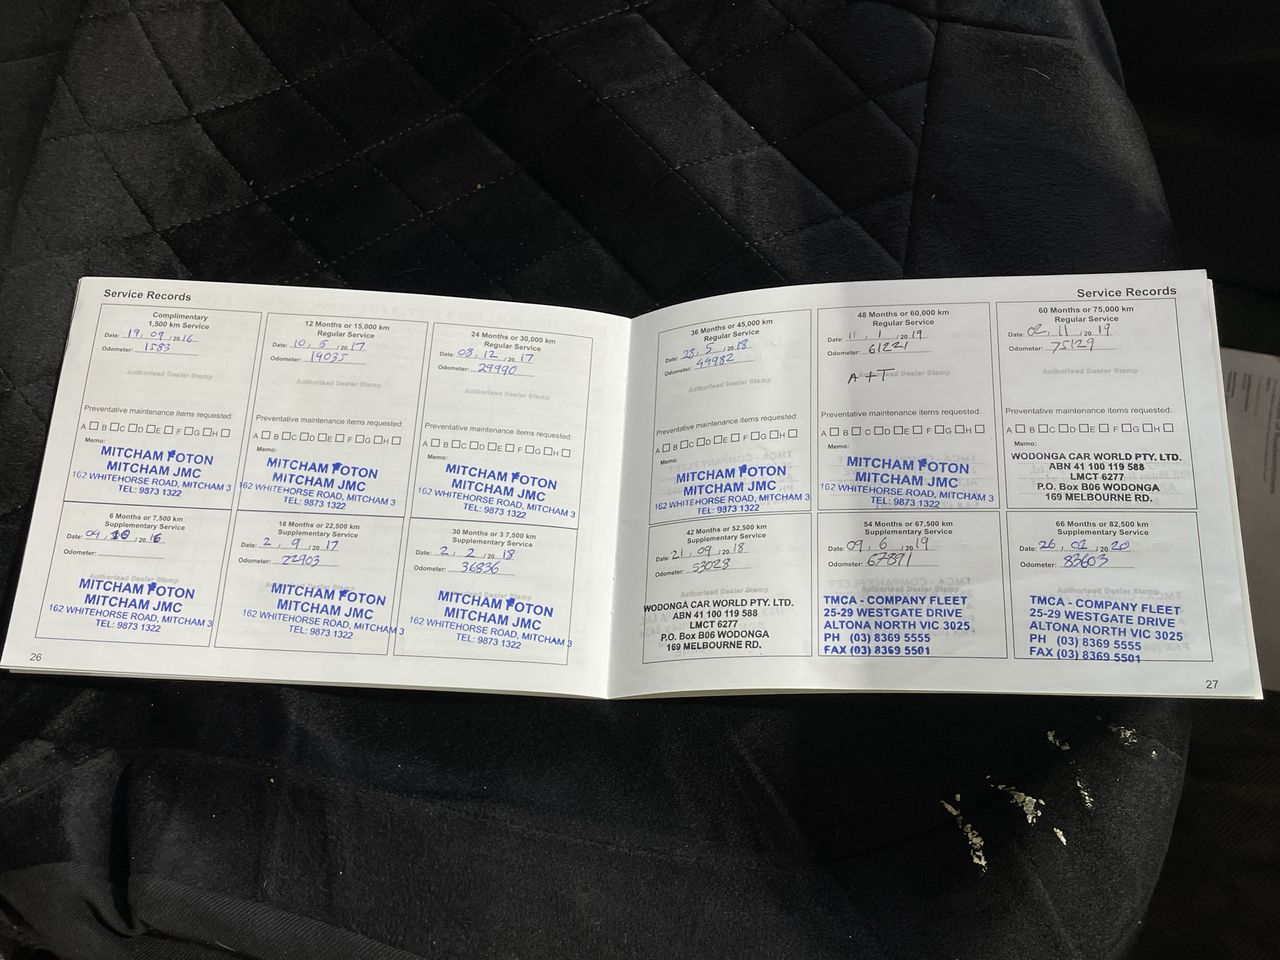 Service Records
Complimentary
1,500 km Service
Date: 19, 09, 20 16
Odometer: 1583
Authorised Dealer Stamp
Preventative maintenance items requested:
A B C D E F G H
Memo:
MITCHAM FOTON
MITCHAM JMC
162 WHITEHORSE ROAD, MITCHAM 3
TEL: 9873 1322
12 Months or 15,000 km
Regular Service
Date: 10, 5, 20 17
Odometer: 19035
Authorised Dealer Stamp
Preventative maintenance items requested:
A B C D E F G H
Memo:
MITCHAM FOTON
MITCHAM JMC
162 WHITEHORSE ROAD, MITCHAM 3
TEL: 9873 1322
24 Months or 30,000 km
Regular Service
Date: 08, 12, 20 17
Odometer: 29990
Authorised Dealer Stamp
Preventative maintenance items requested:
A B C D E F G H
Memo:
MITCHAM FOTON
MITCHAM JMC
162 WHITEHORSE ROAD, MITCHAM 3
TEL: 9873 1322
6 Months or 7,500 km
Supplementary Service
Date: 09, 10, 20 16
Odometer:
Authorised Dealer Stamp
MITCHAM FOTON
MITCHAM JMC
162 WHITEHORSE ROAD, MITCHAM 3
TEL: 9873 1322
18 Months or 22,500 km
Supplementary Service
Date: 2, 9, 20 17
Odometer: 22903
MITCHAM FOTON
MITCHAM JMC
162 WHITEHORSE ROAD, MITCHAM 3
TEL: 9873 1322
30 Months or 3 7,500 km
Supplementary Service
Date: 2, 2, 20 18
Odometer: 36836
MITCHAM FOTON
MITCHAM JMC
162 WHITEHORSE ROAD, MITCHAM 3
TEL: 9873 1322
26
Service Records
36 Months or 45,000 km
Regular Service
Date: 28, 5, 20 18
Odometer: 44982
Authorised Dealer Stamp
Preventative maintenance items requested:
A B C D E F G H
Memo:
MITCHAM FOTON
MITCHAM JMC
162 WHITEHORSE ROAD, MITCHAM 3
TEL: 9873 1322
48 Months or 60,000 km
Regular Service
Date: 11, 1, 20 19
Odometer: 61221
A + T
Authorised Dealer Stamp
Preventative maintenance items requested:
A B C D E F G H
Memo:
MITCHAM FOTON
MITCHAM JMC
162 WHITEHORSE ROAD, MITCHAM 3
TEL: 9873 1322
60 Months or 75,000 km
Regular Service
Date: 02, 11, 20 19
Odometer: 75129
Authorised Dealer Stamp
Preventative maintenance items requested:
A B C D E F G H
Memo:
WODONGA CAR WORLD PTY. LTD.
ABN 41 100 119 588
LMCT 6277
P.O. Box B06 WODONGA
169 MELBOURNE RD.
42 Months or 52,500 km
Supplementary Service
Date: 21, 09, 20 18
Odometer: 53028
Authorised Dealer Stamp
WODONGA CAR WORLD PTY. LTD.
ABN 41 100 119 588
LMCT 6277
P.O. Box B06 WODONGA
169 MELBOURNE RD.
54 Months or 67,500 km
Supplementary Service
Date: 09, 6, 20 19
Odometer: 67891
TMCA - COMPANY FLEET
25-29 WESTGATE DRIVE
ALTONA NORTH VIC 3025
PH (03) 8369 5555
FAX (03) 8369 5501
66 Months or 82,500 km
Supplementary Service
Date: 26, 02, 20 20
Odometer: 83603
TMCA - COMPANY FLEET
25-29 WESTGATE DRIVE
ALTONA NORTH VIC 3025
PH (03) 8369 5555
FAX (03) 8369 5501
27